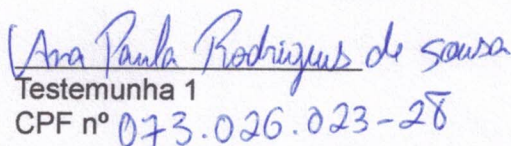 Ana Paula Rodrigues de Sousa
Testemunha 1
CPF nº 073.026.023-28